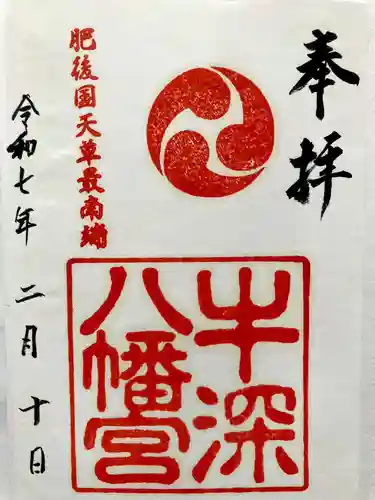 奉拝
牛深
八幡宮
肥後国天草最南端
令和七年二月十日